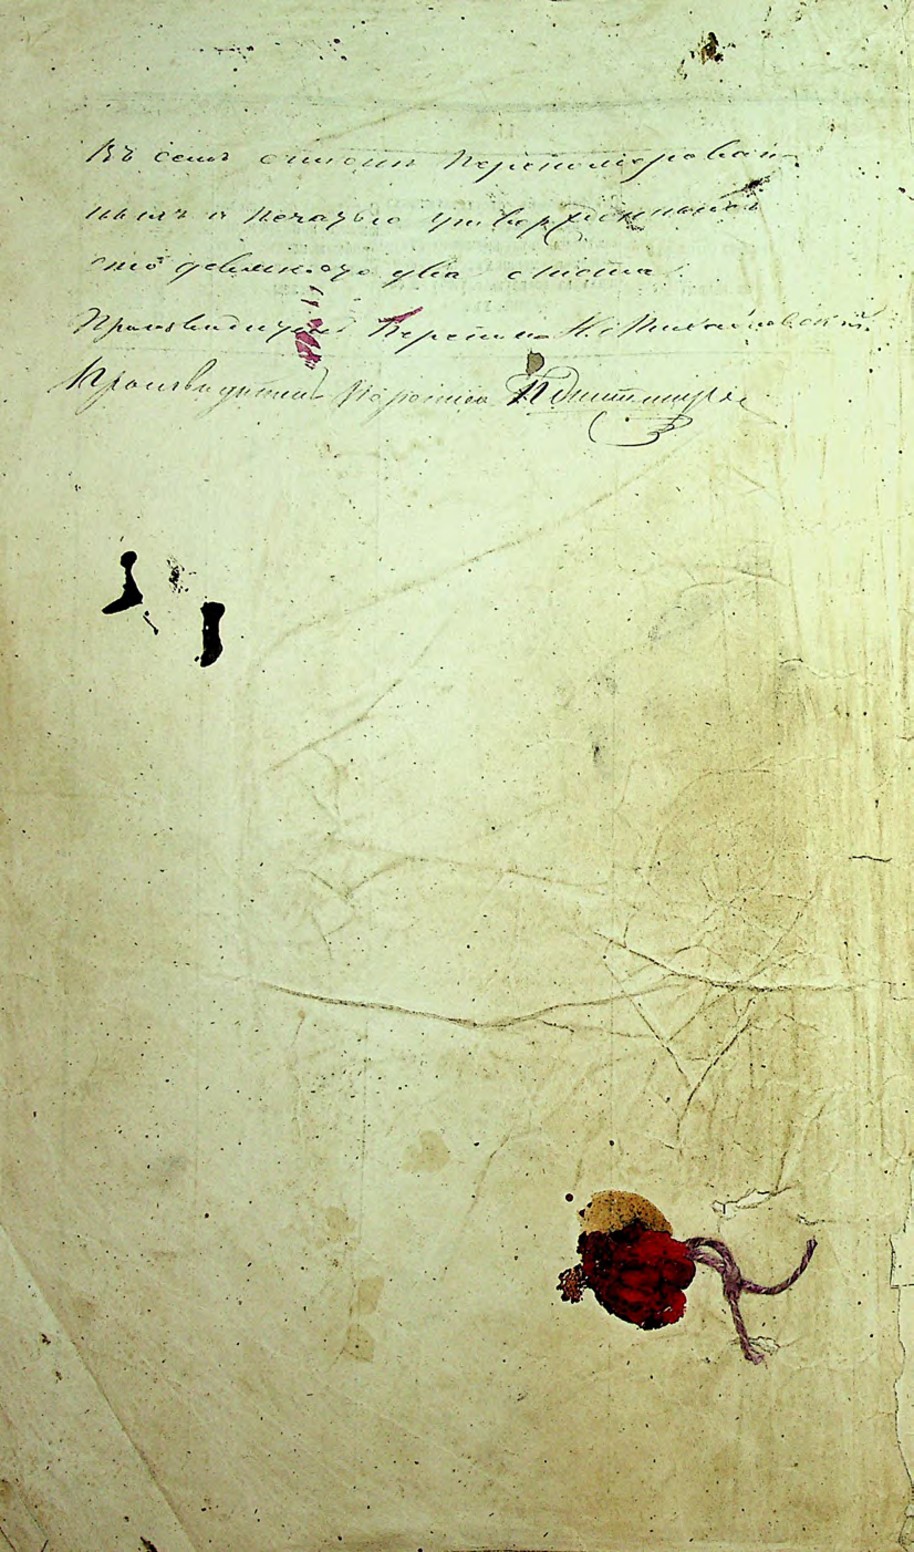 Въ семъ списки перенумерован-
нымъ и печатью утвержденнымъ
сто девяносто два листа.
Производящій перепись Н. Михайловскій.
Производитель переписи